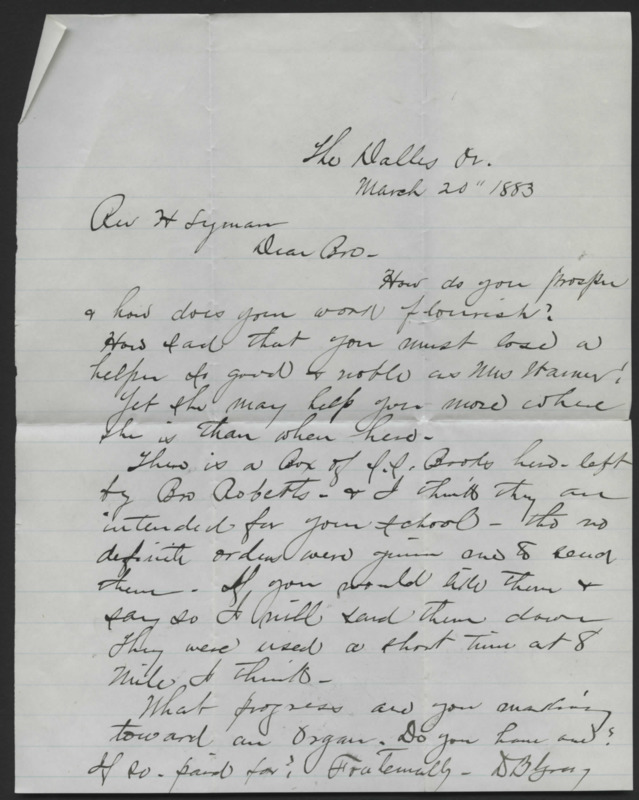 The Dalles Or.
March 20" 1883
Rev H Lyman
Dear Bro-
How do you prosper
& how does your work flourish?
How sad that you must lose a
helper so good & noble as Mrs Warner!
Yet she may help you more where
she is than when here-
There is a Box of S.S. Books here-left
by Bro Roberts- & I think they are
intended for your school - tho no
definite orders were given me to send
them- If you would like them &
say so I will send them down
They were used a short time at 8
Mile I think-
What progress are you making
toward an organ. Do you have one?
If so- paid for? Fraternally- D B Gray